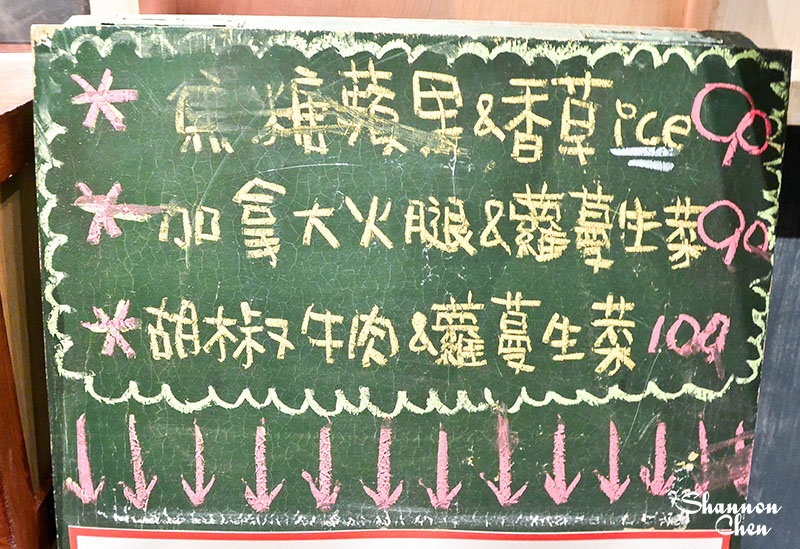 * 焦糖蘋果&香草ice 90
* 加拿大火腿&蘿蔓生菜 90
* 胡椒牛肉&蘿蔓生菜 109
Shannon
Chen